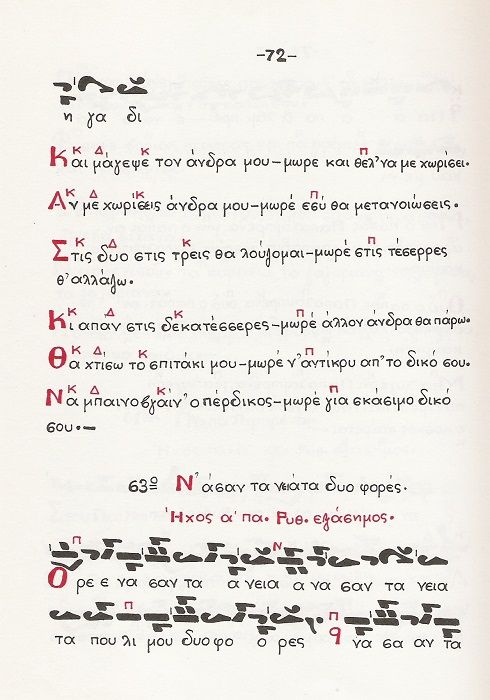 -72-
πη γα δι
Και μάγεψε τον άνδρα μου-μωρέ και θελ'να με χωρίσει.
Αν με χωρίσεις άνδρα μου-μωρέ εσύ θα μετανοιώσεις.
Στις δυο στις τρεις θα λούζομαι-μωρέ στις τέσερρες
θ'αλλάζω.
Κι απάν στις δεκατέσσερες-μωρέ άλλον άνδρα θα πάρω.
Θα χτίσω το σπιτάκι μου-μωρέ ν'αντίκρυ απ'το δικό σου.
Να μπαινοβγαίν'ο πέρδικος-μωρέ για σκάσιμο δικό
σου.-
63º Ν'άσαν τα νειάτα δυο φορές.
Ήχος α' πα. Ρυθ. εξάσημος.
Ο ρε ε να σαν τα ά νεια α να σαν τα νεια
τα που λι μου δυο φο ο ρες να σα αν τα